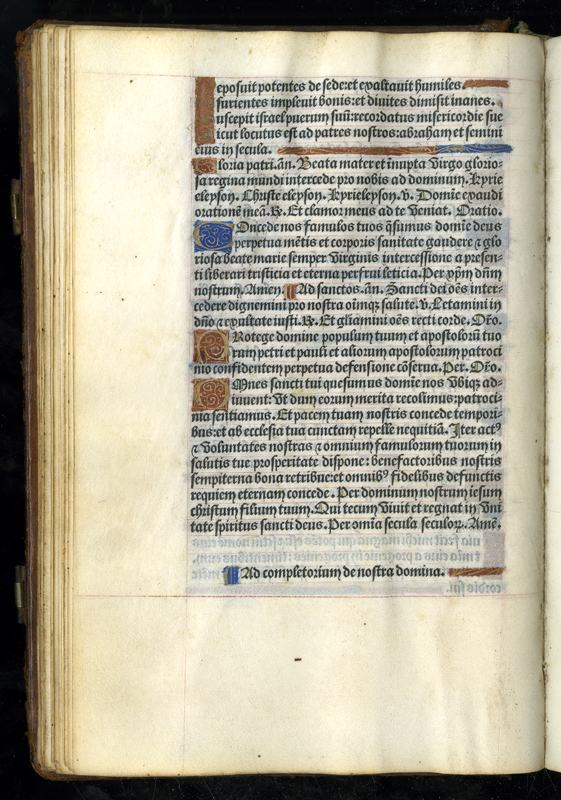 Deposuit potentes de sede:et exaltauit humiles.
Esurientes impleuit bonis:et diuites dimisit inanes.
Suscepit israel puerum suũ:recordatus misericordie sue
Sicut locutus est ad patres nostros:abraham et semini
eius in secula.
Gloria patri.añ. Beata mater et īnupta Virgo glorio-
sa regina mundi intercede pro nobis ad dominum. Kyrie
eleyson. Christe eleyson. Kyrieleyson. v. Domĩe exaudi
orationẽ meã. ℞. Et clamor meus ad te veniat. Oratio.
COncede nos famulos tuos q̃sumus domĩe deus
perpetua mẽtis et corporis sanitate gaudere ⁊ glo
riosa beate marie semper Virginis intercessione a presen-
ti liberari tristicia et eterna perfrui leticia. Per xp̃m dñm
nostrum. Amen. Ad sanctos. añ. Sancti dei oẽs inter-
cedere dignemini pro nostra oĩmq̃ salute. v. Letamini in
dño ⁊ exultate iusti. ℞. Et gl̃iamini oẽs recti corde. Or̃o.
PRotege domine populum tuum et apostolorũ tuo
rum petri et pauli et aliorum apostolorum patroci
nio confidentem perpetua defensione cõserua. Per. Or̃o.
OMnes sancti tui quesumus domĩe nos Vbiq̨ ad-
iuuent: Vt dum eorum merita recolimus:patroci-
nia sentiamus. Et pacem tuam nostris concede tempori-
bus:et ab ecclesia tua cunctam repelle nequitiã. Iter actꝰ
⁊ Voluntates nostras ⁊ omnium famulorum tuorum in
salutis tue prosperitate dispone: benefactoribus nostris
sempiterna bona retribue:et omnibꝰ fidelibus defunctis
requiem eternam concede. Per dominum nostrum iesum
christum filium tuum. Qui tecum Viuit et regnat in Vni
tate spiritus sancti deus. Per om̃ia secula seculoꝝ. Amẽ.
Ad completorium de nostra domina.